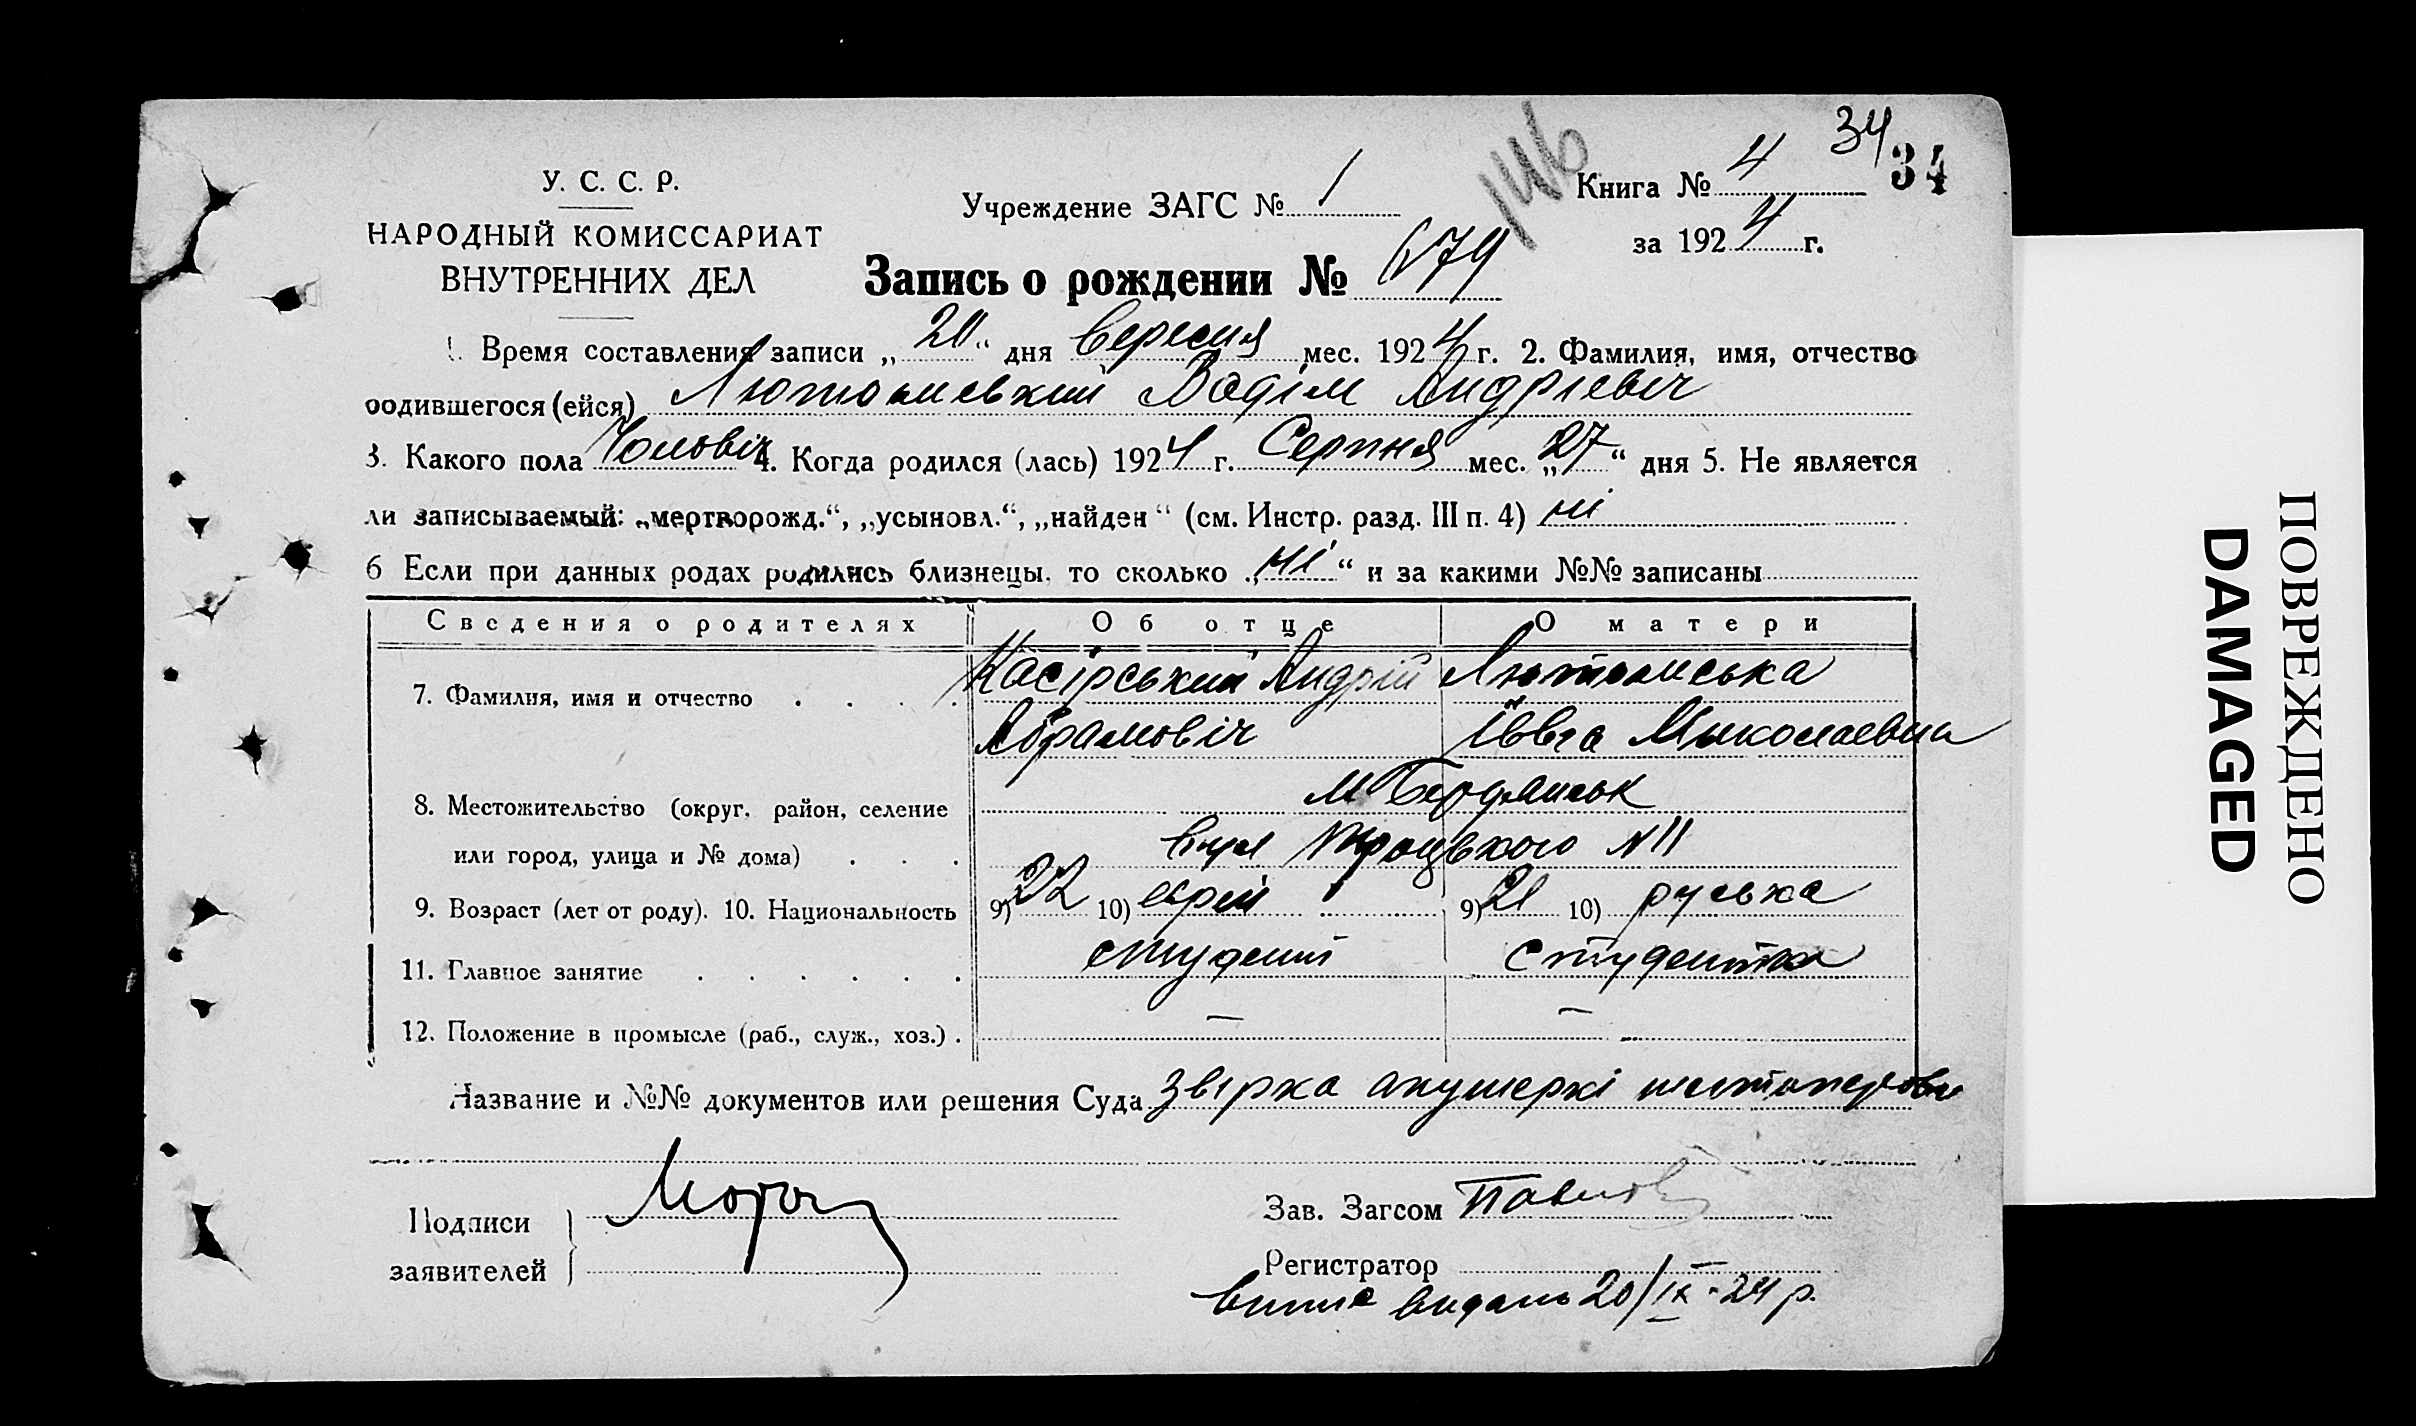 34
34
У. С. С. Р.
НАРОДНЫЙ КОМИССАРИАТ
ВНУТРЕННИХ ДЕЛ
Учреждение ЗАГС № 1
1446
Книга № 4
за 1924 г.
Запись о рождении № 679
1. Время составления записи „20“ дня Вересня мес. 1924 г. 2. Фамилия, имя, отчество
родившегося (ейся) Лютомський Вадім Андрієвіч
3. Какого пола Чоловіч 4. Когда родился (лась) 1924 г. Серпня мес. „27“ дня 5. Не является
ли записываемый: „мертворожд.“, „усыновл.“, „найден“ (см. Инстр. разд. III п. 4) ні
6 Если при данных родах родились близнецы, то сколько „ні“ и за какими №№ записаны
Сведения о родителях Об отце О матери
7. Фамилия, имя и отчество Касірський Андрій Лютомська
Абрамовіч Ївга Миколаевна
8. Местожительство (округ, район, селение м Бердянськ
или город, улица и № дома) вул Троцького № 11
9. Возраст (лет от роду). 10. Национальность 9) 22 10) еврей 9) 21 10) руська
11. Главное занятие студент студентка
12. Положение в промысле (раб., служ., хоз.) — —
Название и №№ документов или решения Суда звірка акушеркі
Подписи
заявителей
Зав. Загсом
Регистратор
випис видань 20/IX-24 р.
ПОВРЕЖДЕНО
DAMAGED